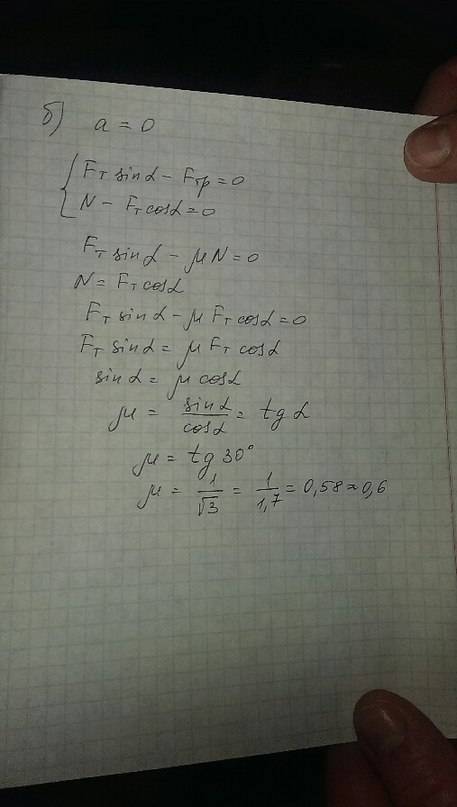 б) a = 0
{ Fт sinα − Fтр = 0
N − Fт cosα = 0
Fт sinα − μN = 0
N = Fт cosα
Fт sinα − μ Fт cosα = 0
Fт sinα = μ Fт cosα
sinα = μ cosα
μ = sinα/cosα = tg α
μ = tg 30°
μ = 1/√3 = 1/1,7 = 0,58 ≈ 0,6